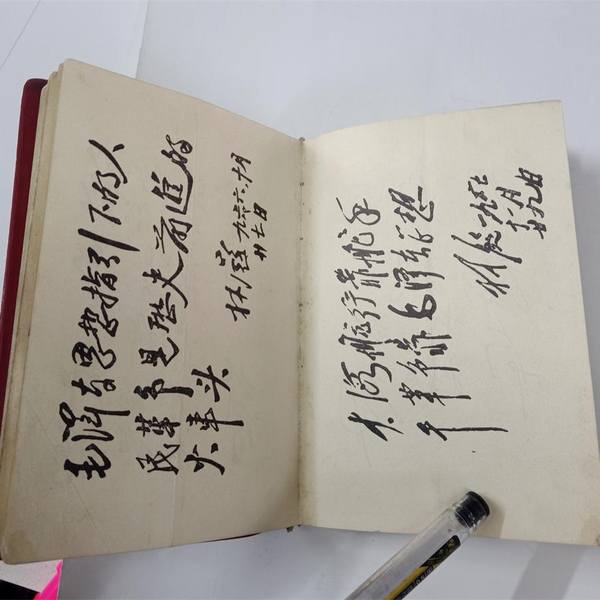 毛泽东思想指引下的人
民革命是歷史前進的
火車头
林彪 一九六六、十月
廿七日
大海航行靠舵手
干革命靠毛泽东思想
林彪 一九六七
十一月
廿九日